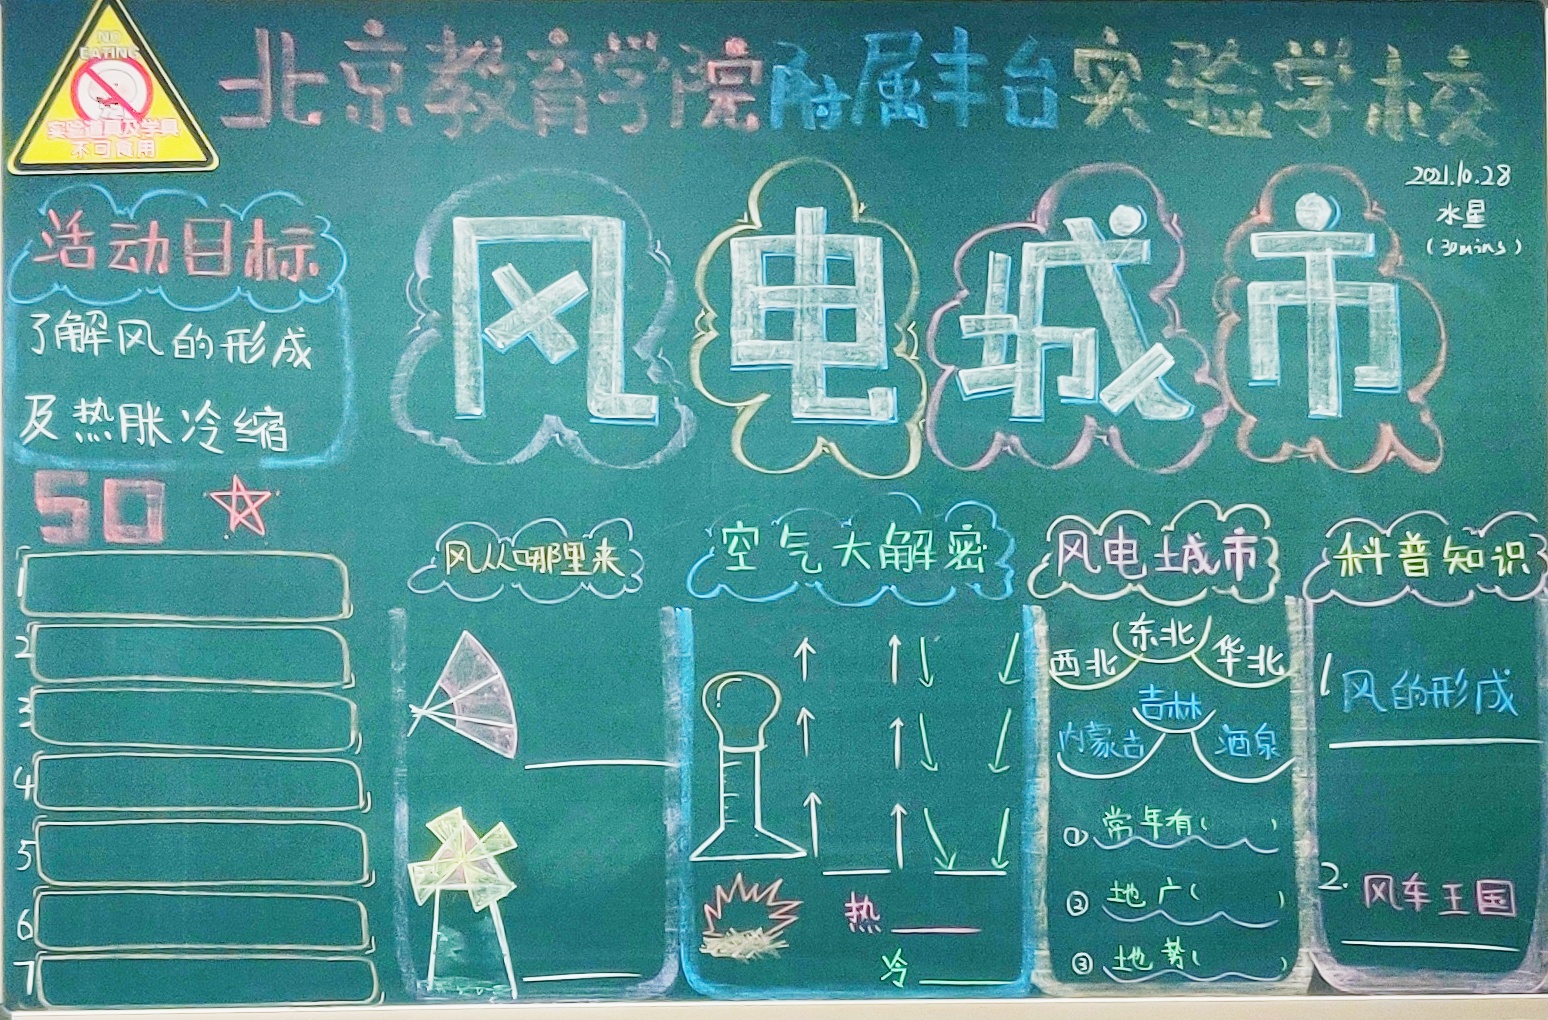 NO
EATING
实验道具及学具
不可食用
北京教育学院附属丰台实验学校
2021.10.28
水星
(30mins)
风电城市
活动目标
了解风的形成
及热胀冷缩
50
1
2
3
4
5
6
7
风从哪里来
空气大解密
热
冷
风电城市
西北 东北 华北
内蒙古 吉林 酒泉
① 常年有( )
② 地广( )
③ 地势( )
科普知识
1 风的形成
2. 风车王国